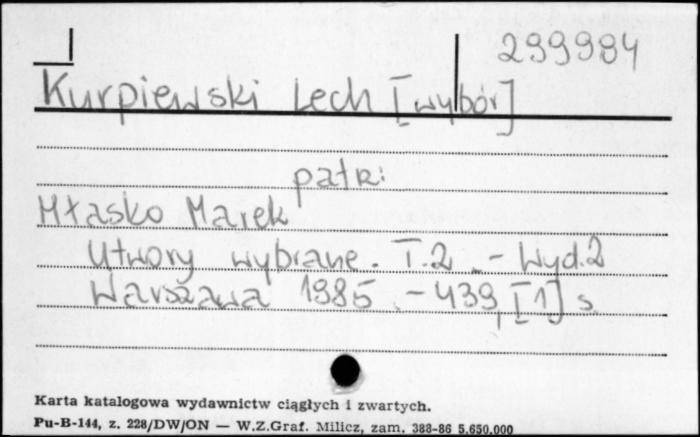 299984
Kurpiewski Lech [wybór]
patrz:
Hłasko Marek
Utwory wybrane. T.2. - Wyd.2
Warszawa 1985. - 439, [1] s.
Karta katalogowa wydawnictw ciągłych i zwartych.
Pu-B-144, z. 228/DW/ON — W.Z.Graf. Milicz, zam. 388-86 5.650.000